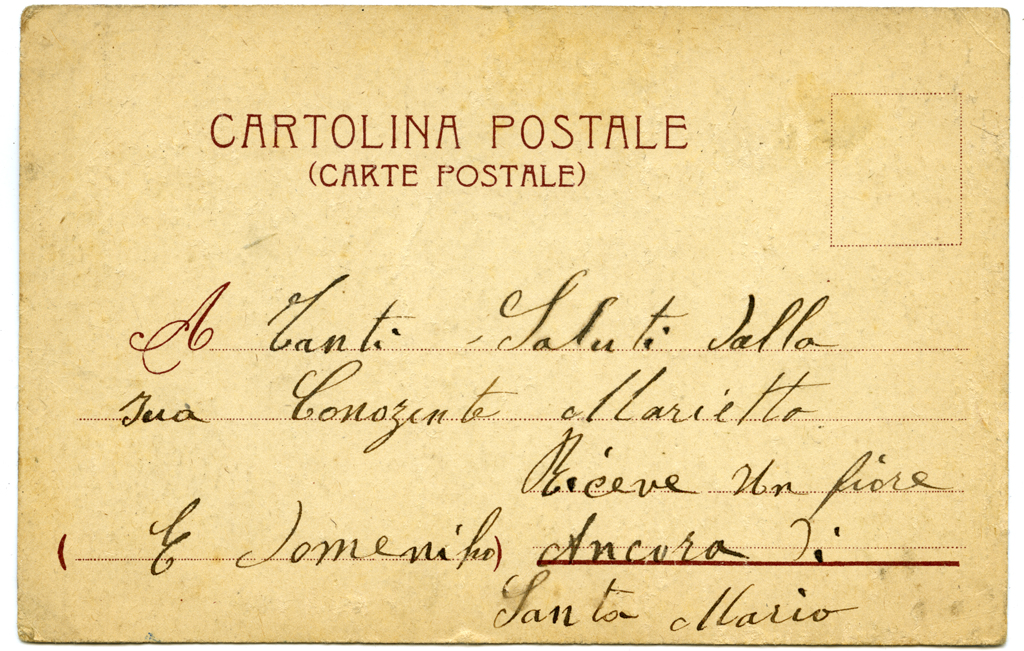 CARTOLINA POSTALE
(CARTE POSTALE)
A Tanti - Saluti dalla
sua Conozente Marietta
Riceve un fiore
(E Domeniko) Ancora di
Santa Mario